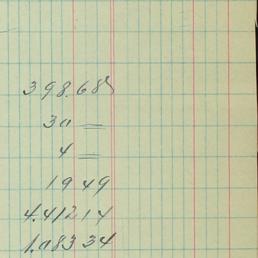 398.68
30 =
4 =
19 49
4.412 14
1.083 34